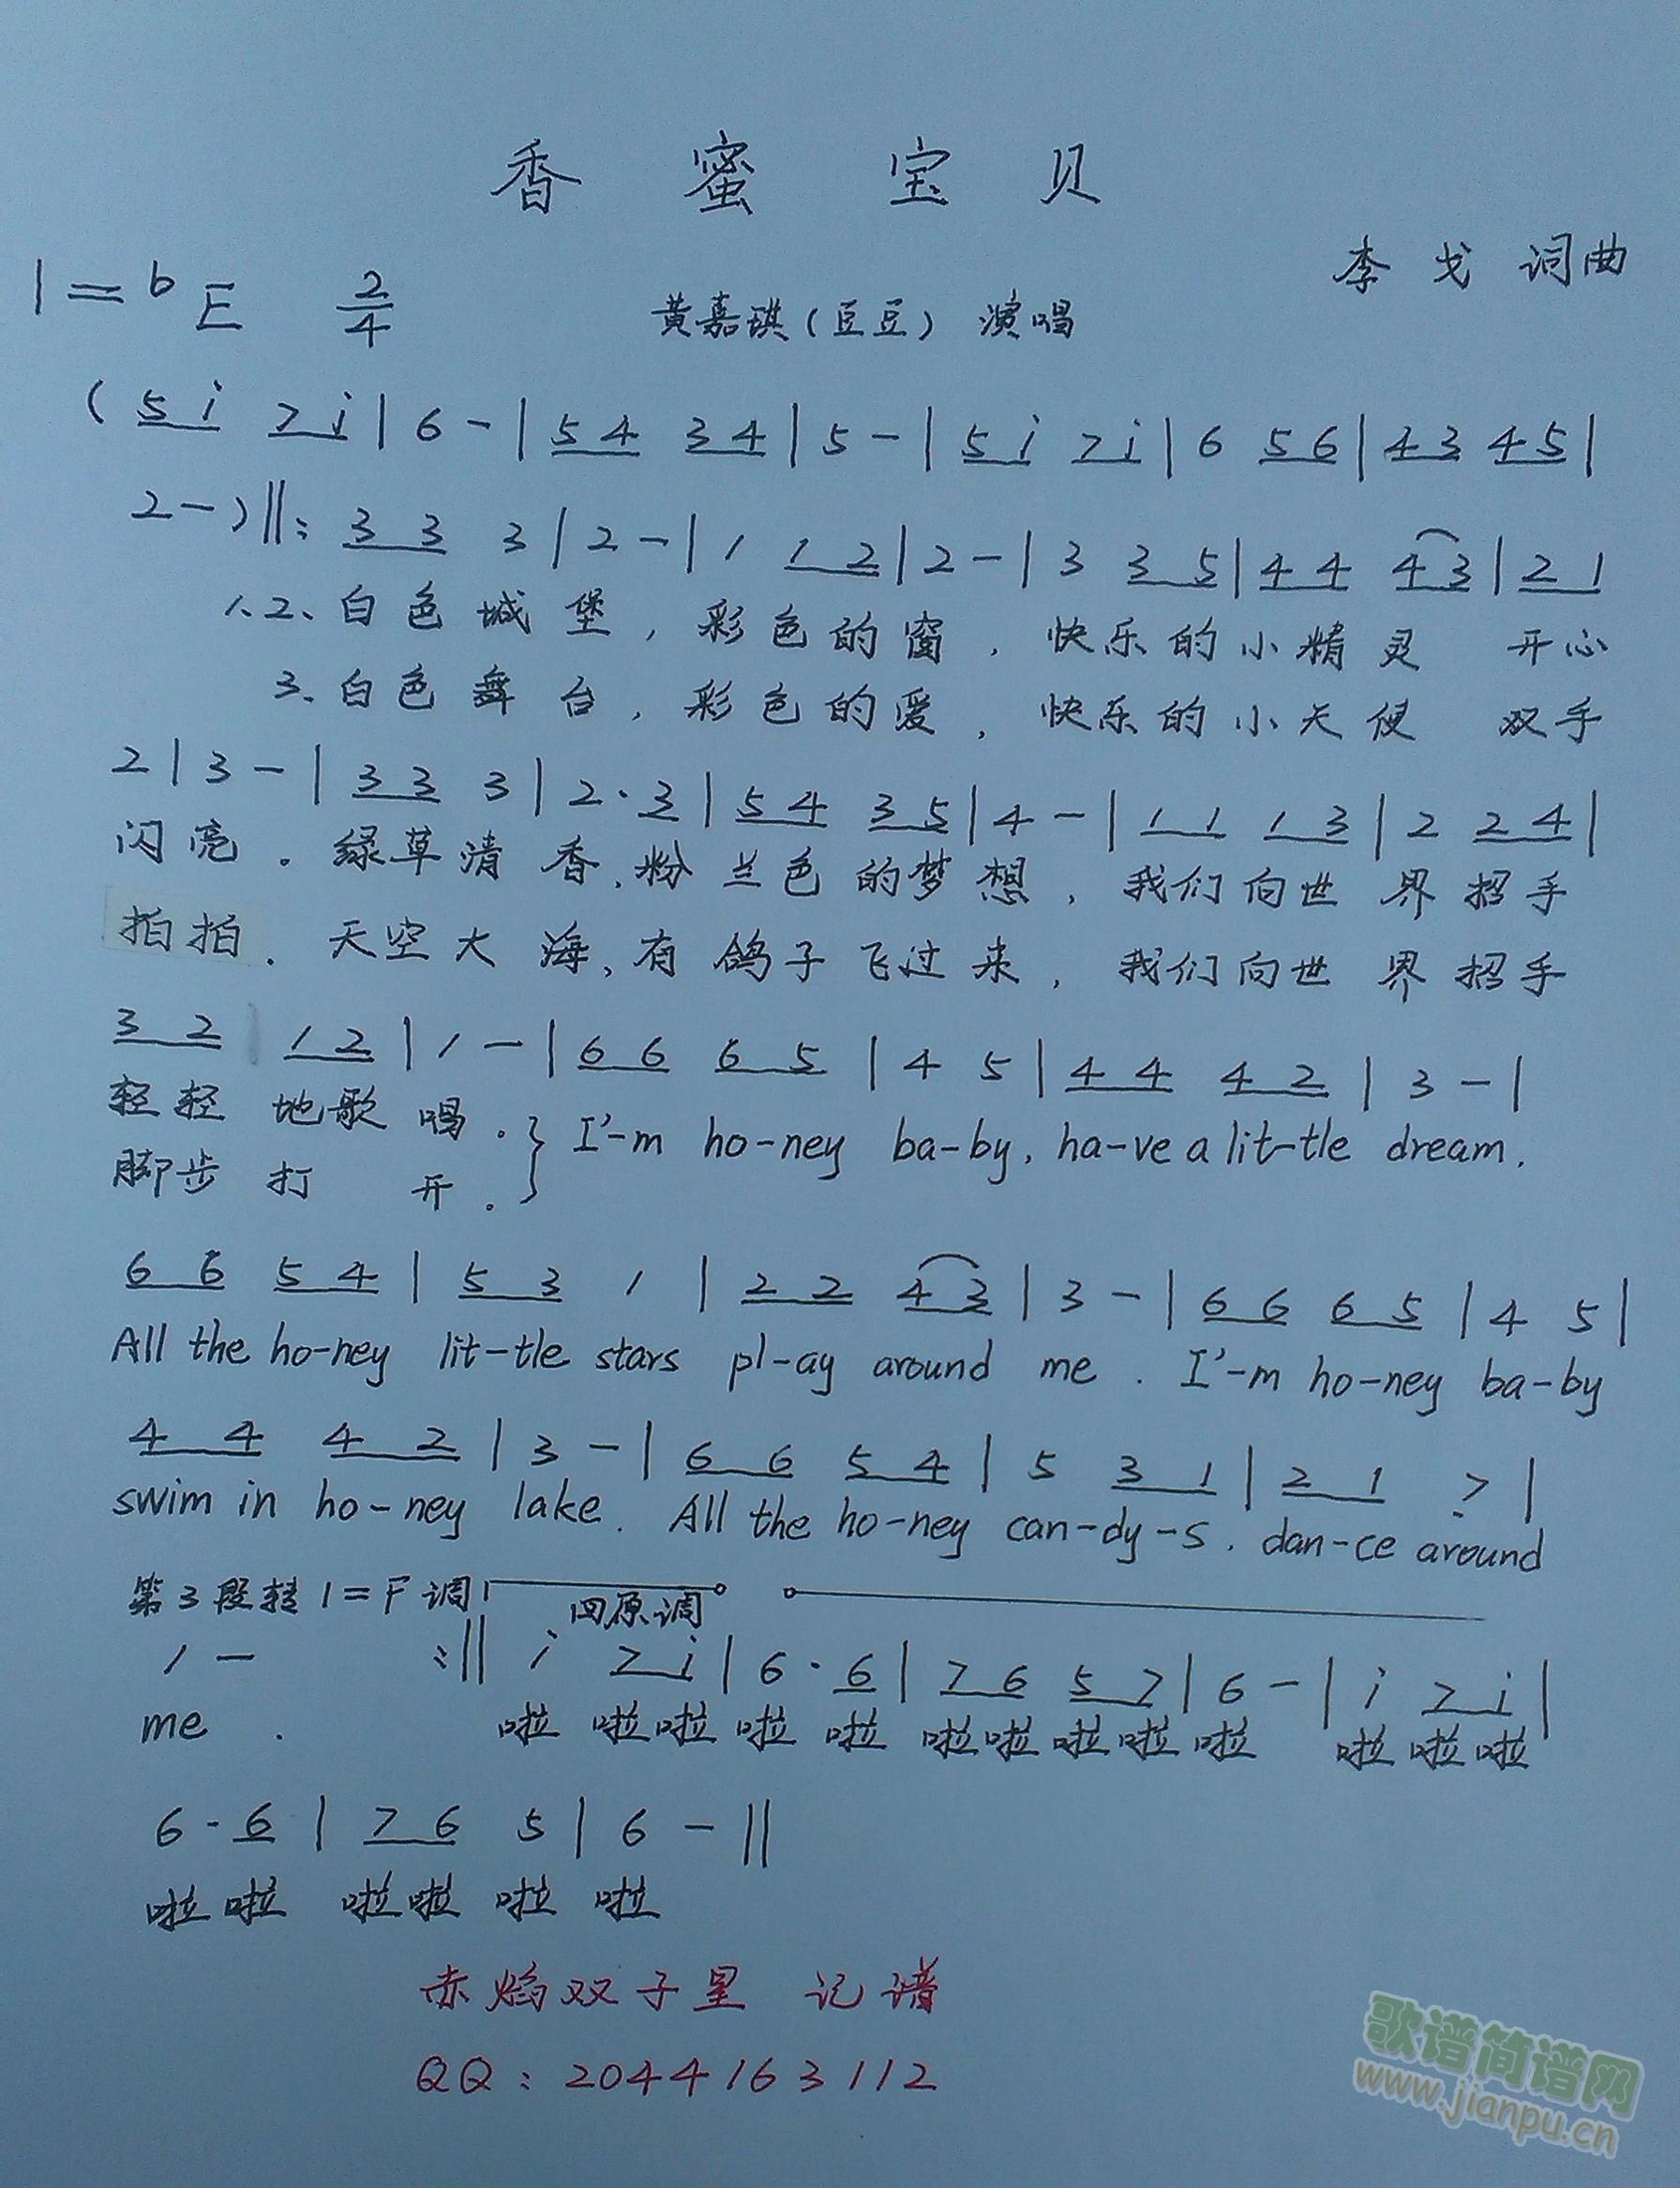 香 蜜 宝 贝
李 戈 词曲
1=♭E 2/4 黄嘉琪(豆豆) 演唱
(5 i 7 i | 6 - | 5 4 3 4 | 5 - | 5 i 7 i | 6 5 6 | 4 3 4 5 |
2 - ) ‖: 3 3 3 | 2 - | 1 1 2 | 2 - | 3 3 5 | 4 4 4 3 | 2 1
1、2、白色城堡,彩色的窗,快乐的小精灵 开心
3、白色舞台,彩色的爱,快乐的小天使 双手
2 | 3 - | 3 3 3 | 2 · 3 | 5 4 3 5 | 4 - | 1 1 1 3 | 2 2 4 |
闪亮。绿草清香,粉兰色的梦想,我们向世界招手
拍拍。天空大海,有鸽子飞过来,我们向世界招手
3 2 1 2 | 1 - | 6 6 6 5 | 4 5 | 4 4 4 2 | 3 - |
轻轻地歌唱。} I'-m ho-ney ba-by, ha-ve a lit-tle dream.
脚步打开。
6 6 5 4 | 5 3 1 | 2 2 4 3 | 3 - | 6 6 6 5 | 4 5 |
All the ho-ney lit-tle stars pl-ay around me. I'-m ho-ney ba-by
4 4 4 2 | 3 - | 6 6 5 4 | 5 3 1 | 2 1 7̣ |
swim in ho-ney lake. All the ho-ney can-dy-s. dan-ce around
第3段转1=F调 回原调
1 - :‖ i 7 i | 6 · 6 | 7 6 5 7 | 6 - | i 7 i |
me. 啦 啦啦 啦 啦 啦啦啦啦 啦 啦 啦啦
6 · 6 | 7 6 5 | 6 - ‖
啦 啦 啦啦 啦 啦
赤焰双子星 记谱
QQ:2044163112
歌谱简谱网
www.jianpu.cn